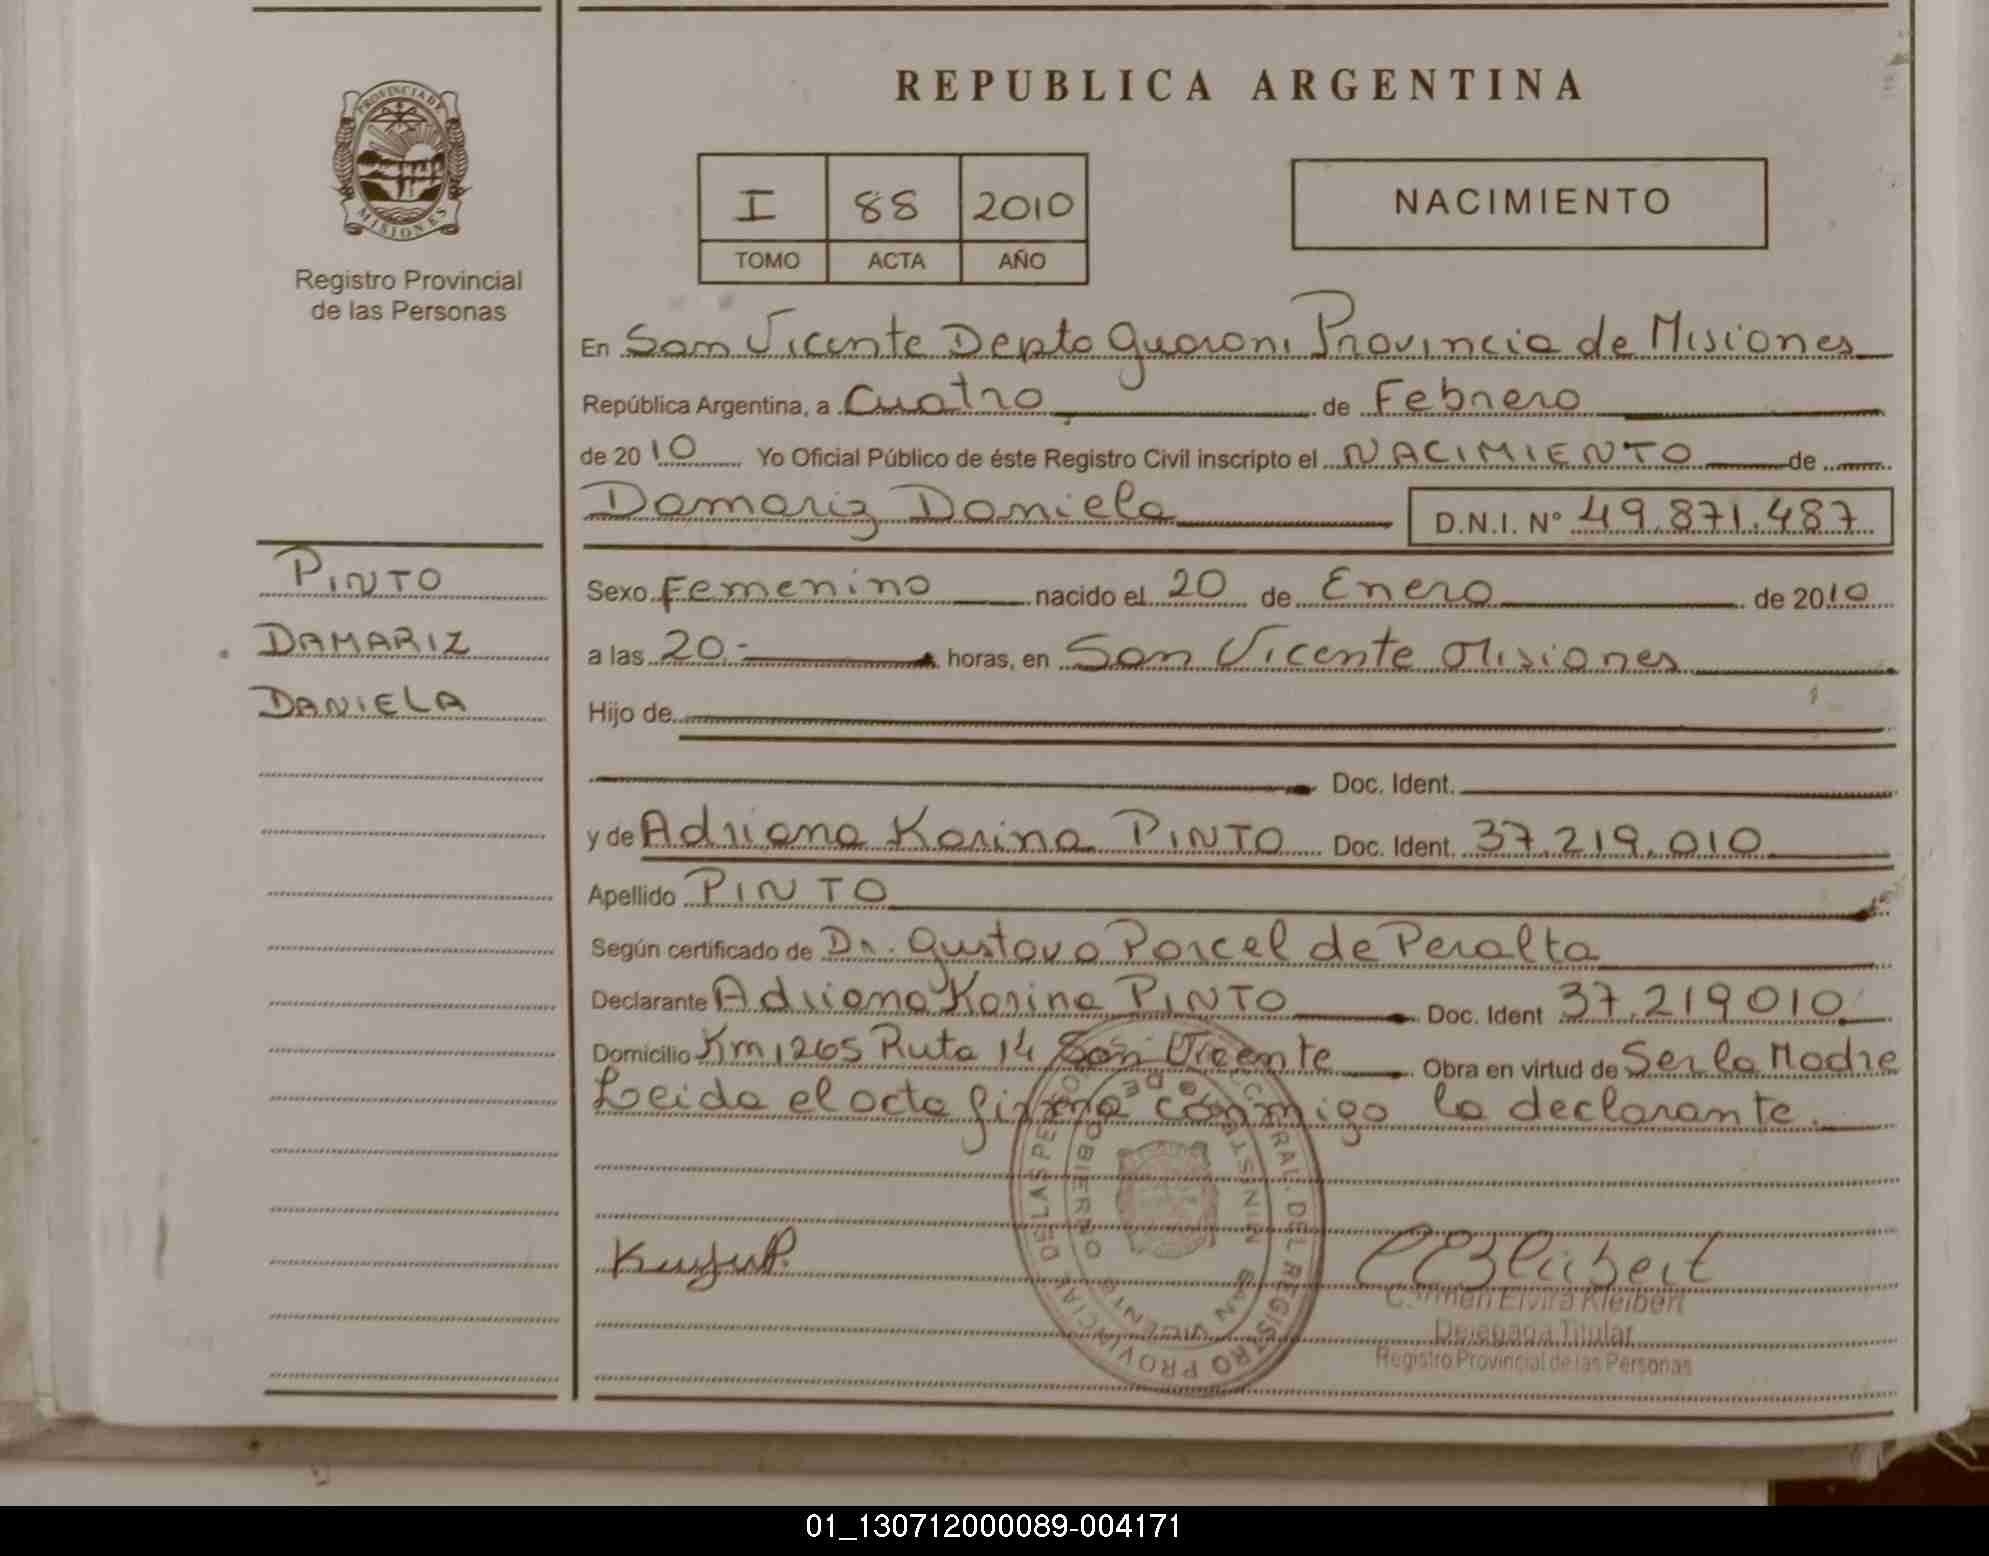 PROVINCIA DE
MISIONES
Registro Provincial
de las Personas
PINTO
DAMARIZ
DANIELA
REPUBLICA ARGENTINA
I 88 2010
TOMO ACTA AÑO
NACIMIENTO
En San Vicente Depto Guarani Provincia de Misiones
República Argentina, a Cuatro de Febrero
de 2010 Yo Oficial Público de éste Registro Civil inscripto el NACIMIENTO de
Damariz Daniela D.N.I. Nº 49.871.487
Sexo Femenino nacido el 20 de Enero de 2010
a las 20.- horas, en San Vicente Misiones
Hijo de
Doc. Ident.
y de Adriana Karina PINTO Doc. Ident. 37.219.010
Apellido PINTO
Según certificado de Dr. Gustavo Porcel de Peralta
Declarante Adriana Karina PINTO Doc. Ident 37.219010
Domicilio Km 1265 Ruta 14 San Vicente Obra en virtud de Ser la Madre
Leida el acta firma conmigo la declarante.
REGISTRO PROVINCIAL DE LAS
GOBIERNO
SAN VICENTE
Carmen Elvira Kleibert
Delegada Titular
Registro Provincial de las Personas
01_130712000089-004171